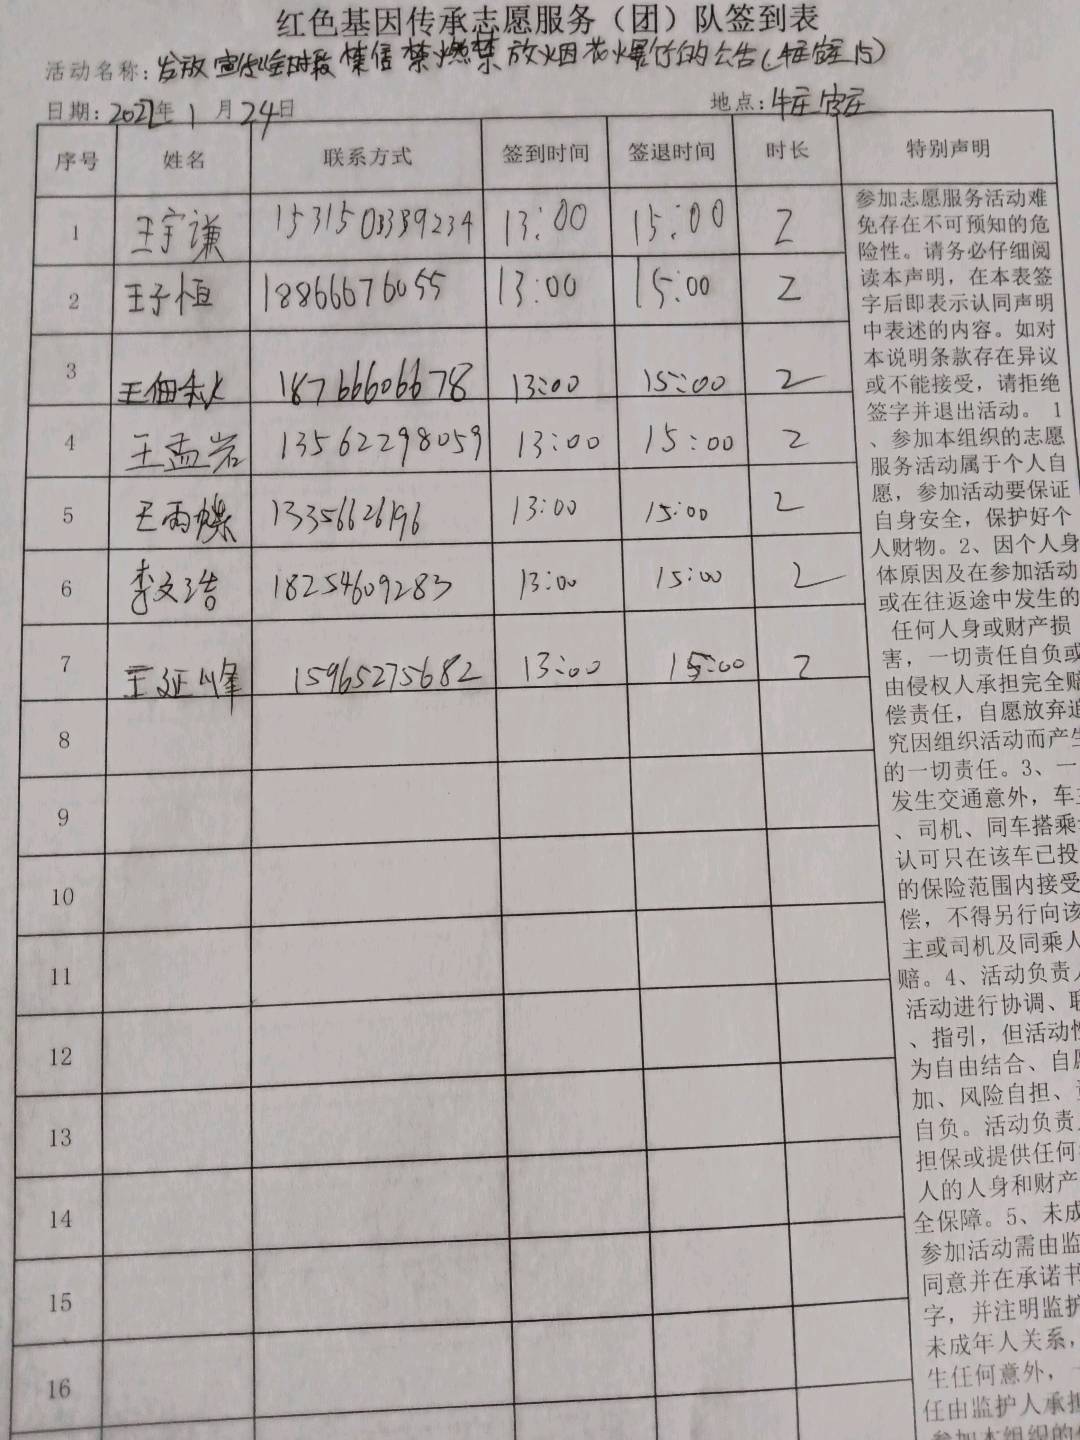 红色基因传承志愿服务（团）队签到表
活动名称：发放宣传全时段禁售禁燃禁放烟花爆竹的公告（
日期：2022年1月24日 地点：
序号 姓名 联系方式 签到时间 签退时间 时长 特别声明
1 王宇谦 15:00 2
13:00
2 王子恒 18866676055 13:00 15:00 2
3 王佃秋 18766606678 13:00 15:00 2
4 王孟岩 13562298059 13:00 15:00 2
5 王雨蝶 13356626196 13:00 15:00 2
6 李文浩 18254609283 13:00 15:00 2
7 王延峰 15965275682 13:00 15:00 2
8
9
10
11
12
13
14
15
16
参加志愿服务活动难
免存在不可预知的危
险性。请务必仔细阅
读本声明，在本表签
字后即表示认同声明
中表述的内容。如对
本说明条款存在异议
或不能接受，请拒绝
签字并退出活动。 1
、参加本组织的志愿
服务活动属于个人自
愿，参加活动要保证
自身安全，保护好个
人财物。2、因个人身
体原因及在参加活动
或在往返途中发生的
任何人身或财产损
害，一切责任自负或
由侵权人承担完全赔
偿责任，自愿放弃追
究因组织活动而产生
的一切责任。3、一
发生交通意外，车主
、司机、同车搭乘
认可只在该车已投
的保险范围内接受
偿，不得另行向该
主或司机及同乘人
赔。4、活动负责人
活动进行协调、联
、指引，但活动性
为自由结合、自愿
加、风险自担、
自负。活动负责
担保或提供任何
人的人身和财产
全保障。5、未成
参加活动需由监
同意并在承诺书
字，并注明监护
未成年人关系，
生任何意外，
任由监护人承担
参加本组织的